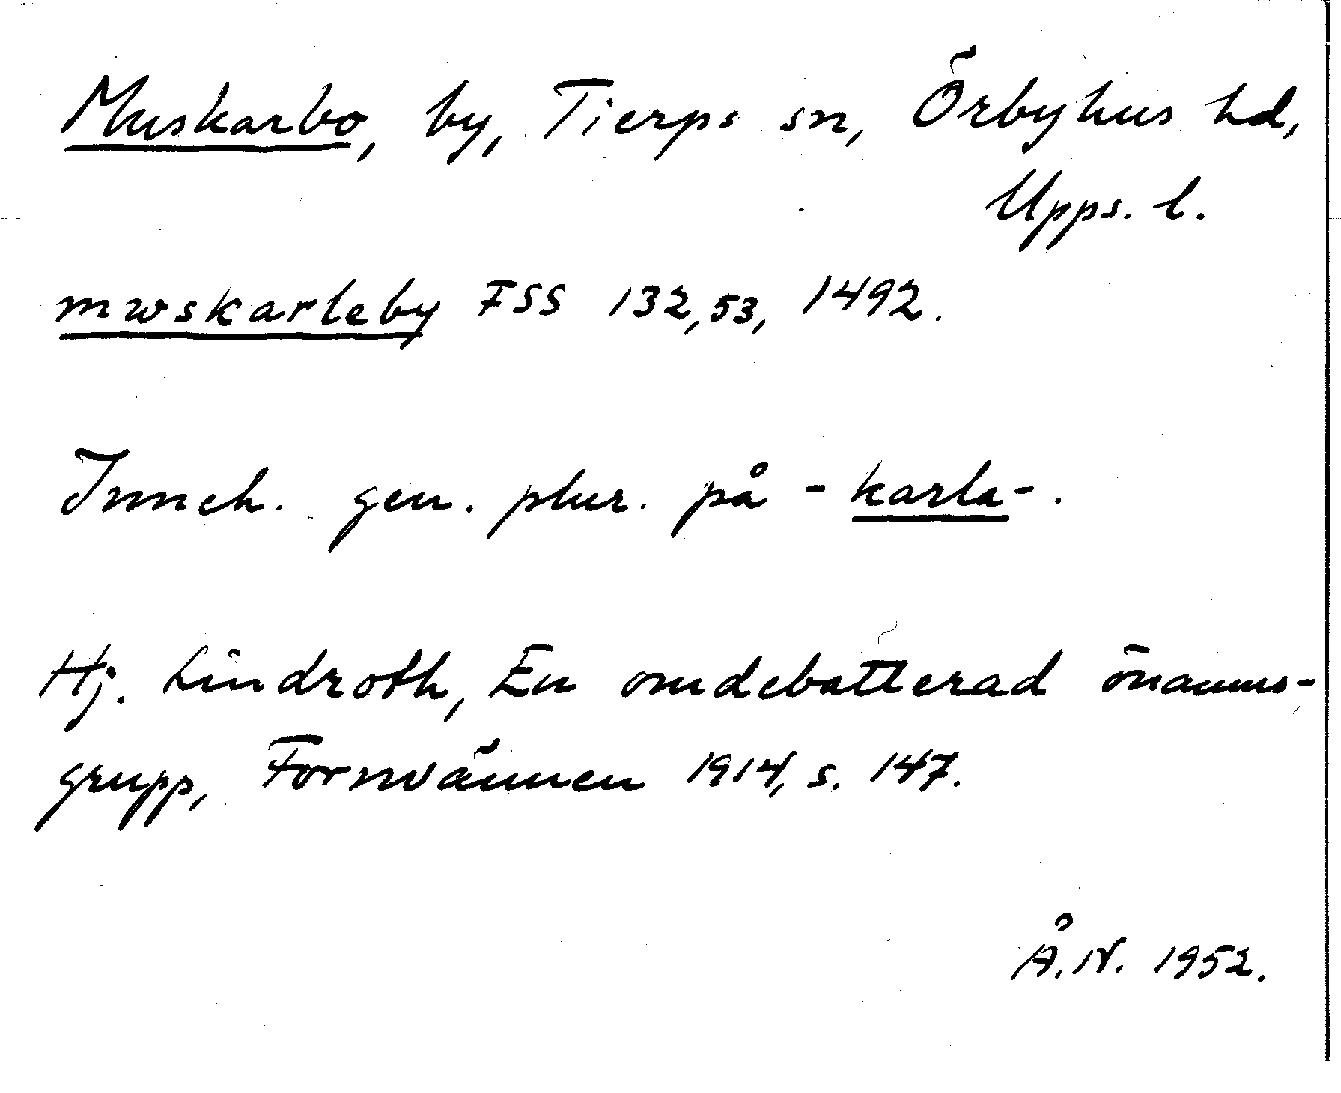 Muskarbo, by, Tierps sn, Örbyhus hd,
Upps. l.
mwskarleby FSS 132,53, 1492.
Inneh. gen. plur. på -karla-.
Hj. Lindroth, En omdebatterad önamns-
grupp, Fornvännen 1914, s. 147.
Å.N. 1952.